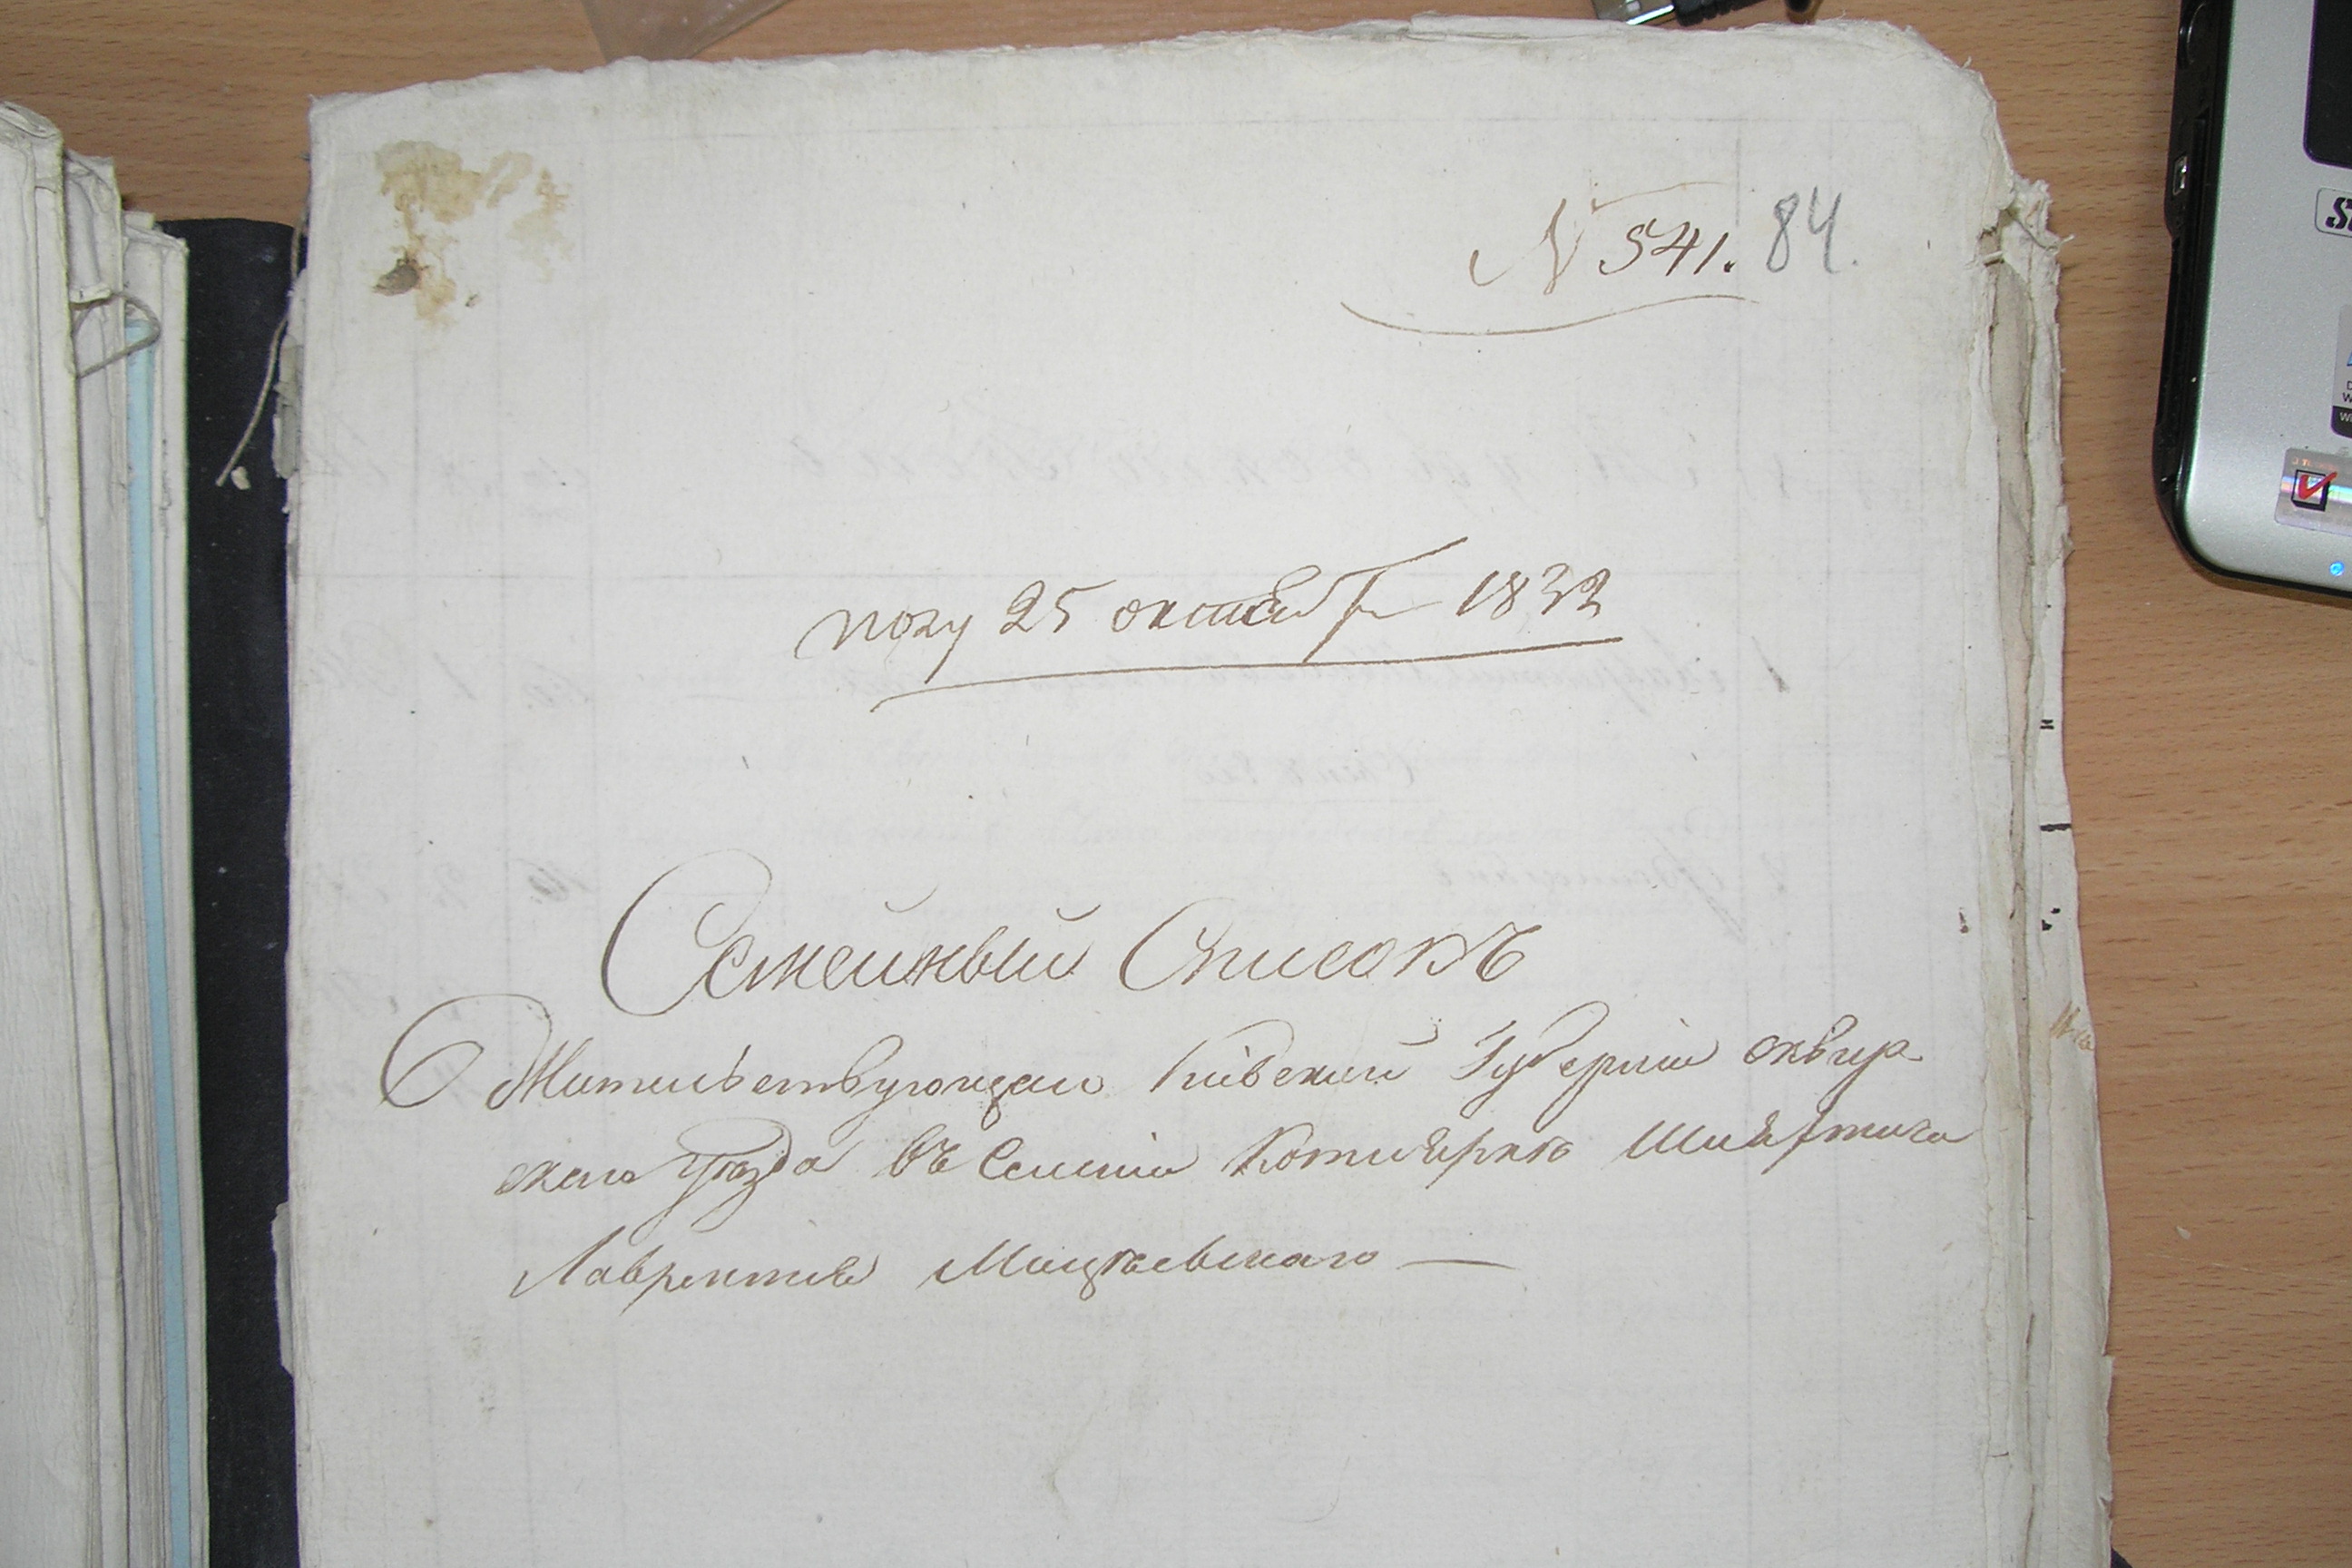 N 541. 84.
полу 25 октября 1832
Семейный Списокъ
О Жительствующем Кіевской Губерніи сквир
скаго уѣзда въ Селеніи Котлярки Шляхтича
Лаврентія Мицкевскаго —